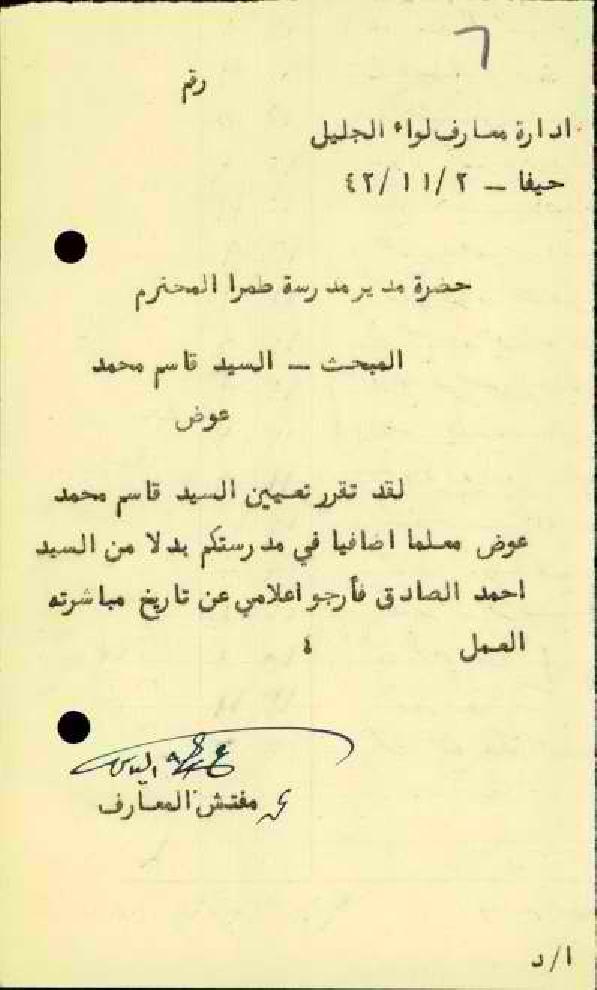 ٦
رقم
ادارة معارف لواء الجليل
حيفا – ٢/١١/٤٢
حضرة مدير مدرسة طمرا المحترم
المبحث – السيد قاسم محمد
عوض
لقد تقرر تعيين السيد قاسم محمد
عوض معلما اضافيا في مدرستكم بدلا من السيد
احمد الصادق فأرجو اعلامي عن تاريخ مباشرته
العمل ٤
مفتش المعارف
ا/د